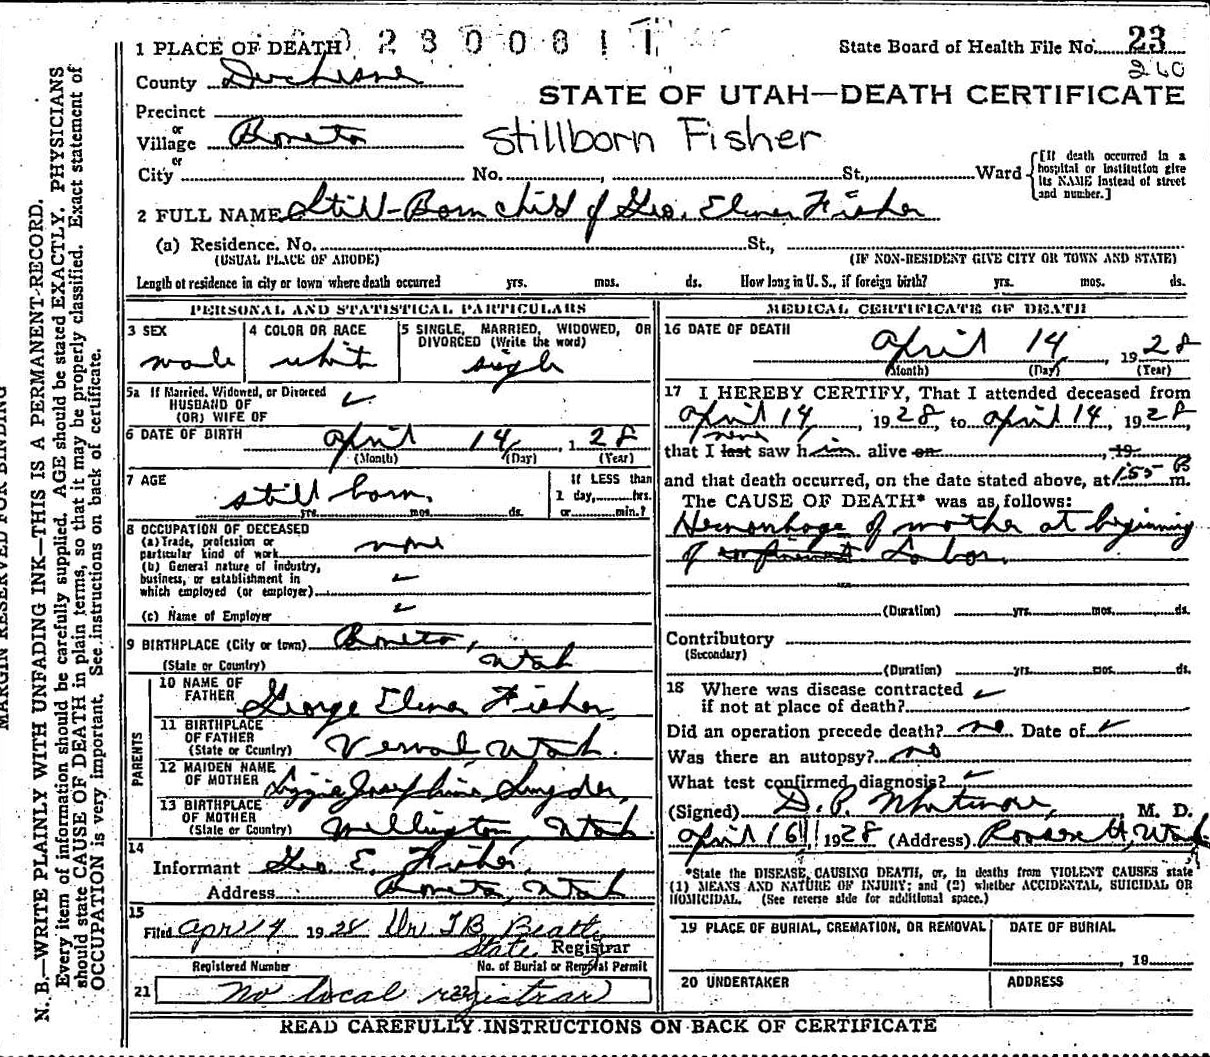 1 PLACE OF DEATH 0 2 8 0 0 0 8 1 1
State Board of Health File No. 23
260
County Duchesne
STATE OF UTAH—DEATH CERTIFICATE
Precinct
or
Village Boneta
Stillborn Fisher
or
City No. , St., Ward
[If death occurred in a hospital or institution give its NAME instead of street and number.]
2 FULL NAME Still-Born child of Geo. Elmer Fisher
(a) Residence. No. St.,
(USUAL PLACE OF ABODE) (IF NON-RESIDENT GIVE CITY OR TOWN AND STATE)
Length of residence in city or town where death occurred yrs. mos. ds. How long in U. S., if foreign birth? yrs. mos. ds.
PERSONAL AND STATISTICAL PARTICULARS
3 SEX
male
4 COLOR OR RACE
white
5 SINGLE, MARRIED, WIDOWED, OR DIVORCED (Write the word)
single
5a If Married, Widowed, or Divorced
HUSBAND OF
(OR) WIFE OF
6 DATE OF BIRTH April 14, 1928
(Month) (Day) (Year)
7 AGE
still born.
yrs. mos. ds.
If LESS than
1 day, hrs.
or min.?
8 OCCUPATION OF DECEASED
(a) Trade, profession or
particular kind of work none
(b) General nature of industry,
business, or establishment in
which employed (or employer)
(c) Name of Employer
9 BIRTHPLACE (City or town) Boneta,
(State or Country) Utah
PARENTS
10 NAME OF
FATHER George Elmer Fisher,
11 BIRTHPLACE
OF FATHER
(State or Country) Vernal, Utah.
12 MAIDEN NAME
OF MOTHER Lizzie Josephine Snyder,
13 BIRTHPLACE
OF MOTHER
(State or Country) Wellington, Utah.
14
Informant Geo. E. Fisher,
Address Boneta, Utah
15
Filed Apr 1928 T B Beatty
State Registrar
Registered Number No. of Burial or Removal Permit
21 No local registrar 22
MEDICAL CERTIFICATE OF DEATH
16 DATE OF DEATH
April 14, 1928
(Month) (Day) (Year)
17 I HEREBY CERTIFY, That I attended deceased from
April 14, 1928, to April 14, 1928,
never
that I last saw him alive on , 19
and that death occurred, on the date stated above, at 1:55 P m.
The CAUSE OF DEATH* was as follows:
Hemorrhage of mother at beginning
of confinement Labor.
(Duration) yrs. mos. ds.
Contributory
(Secondary)
(Duration) yrs. mos. ds.
18 Where was disease contracted
if not at place of death?
Did an operation precede death? no Date of
Was there an autopsy? no
What test confirmed diagnosis?
(Signed) D. P. Whitmore, M. D.
April 16, 1928 (Address) Roosevelt, Utah
*State the DISEASE CAUSING DEATH, or, in deaths from VIOLENT CAUSES state
(1) MEANS AND NATURE OF INJURY; and (2) whether ACCIDENTAL, SUICIDAL OR
HOMICIDAL. (See reverse side for additional space.)
19 PLACE OF BURIAL, CREMATION, OR REMOVAL
DATE OF BURIAL
, 19
20 UNDERTAKER
ADDRESS
READ CAREFULLY INSTRUCTIONS ON BACK OF CERTIFICATE
MARGIN RESERVED FOR BINDING
N. B.—WRITE PLAINLY WITH UNFADING INK—THIS IS A PERMANENT RECORD.
Every item of information should be carefully supplied. AGE should be stated EXACTLY. PHYSICIANS
should state CAUSE OF DEATH in plain terms, so that it may be properly classified. Exact statement of
OCCUPATION is very important. See instructions on back of certificate.